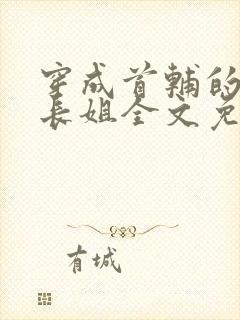 穿成首輔的
長姐全文免
有城